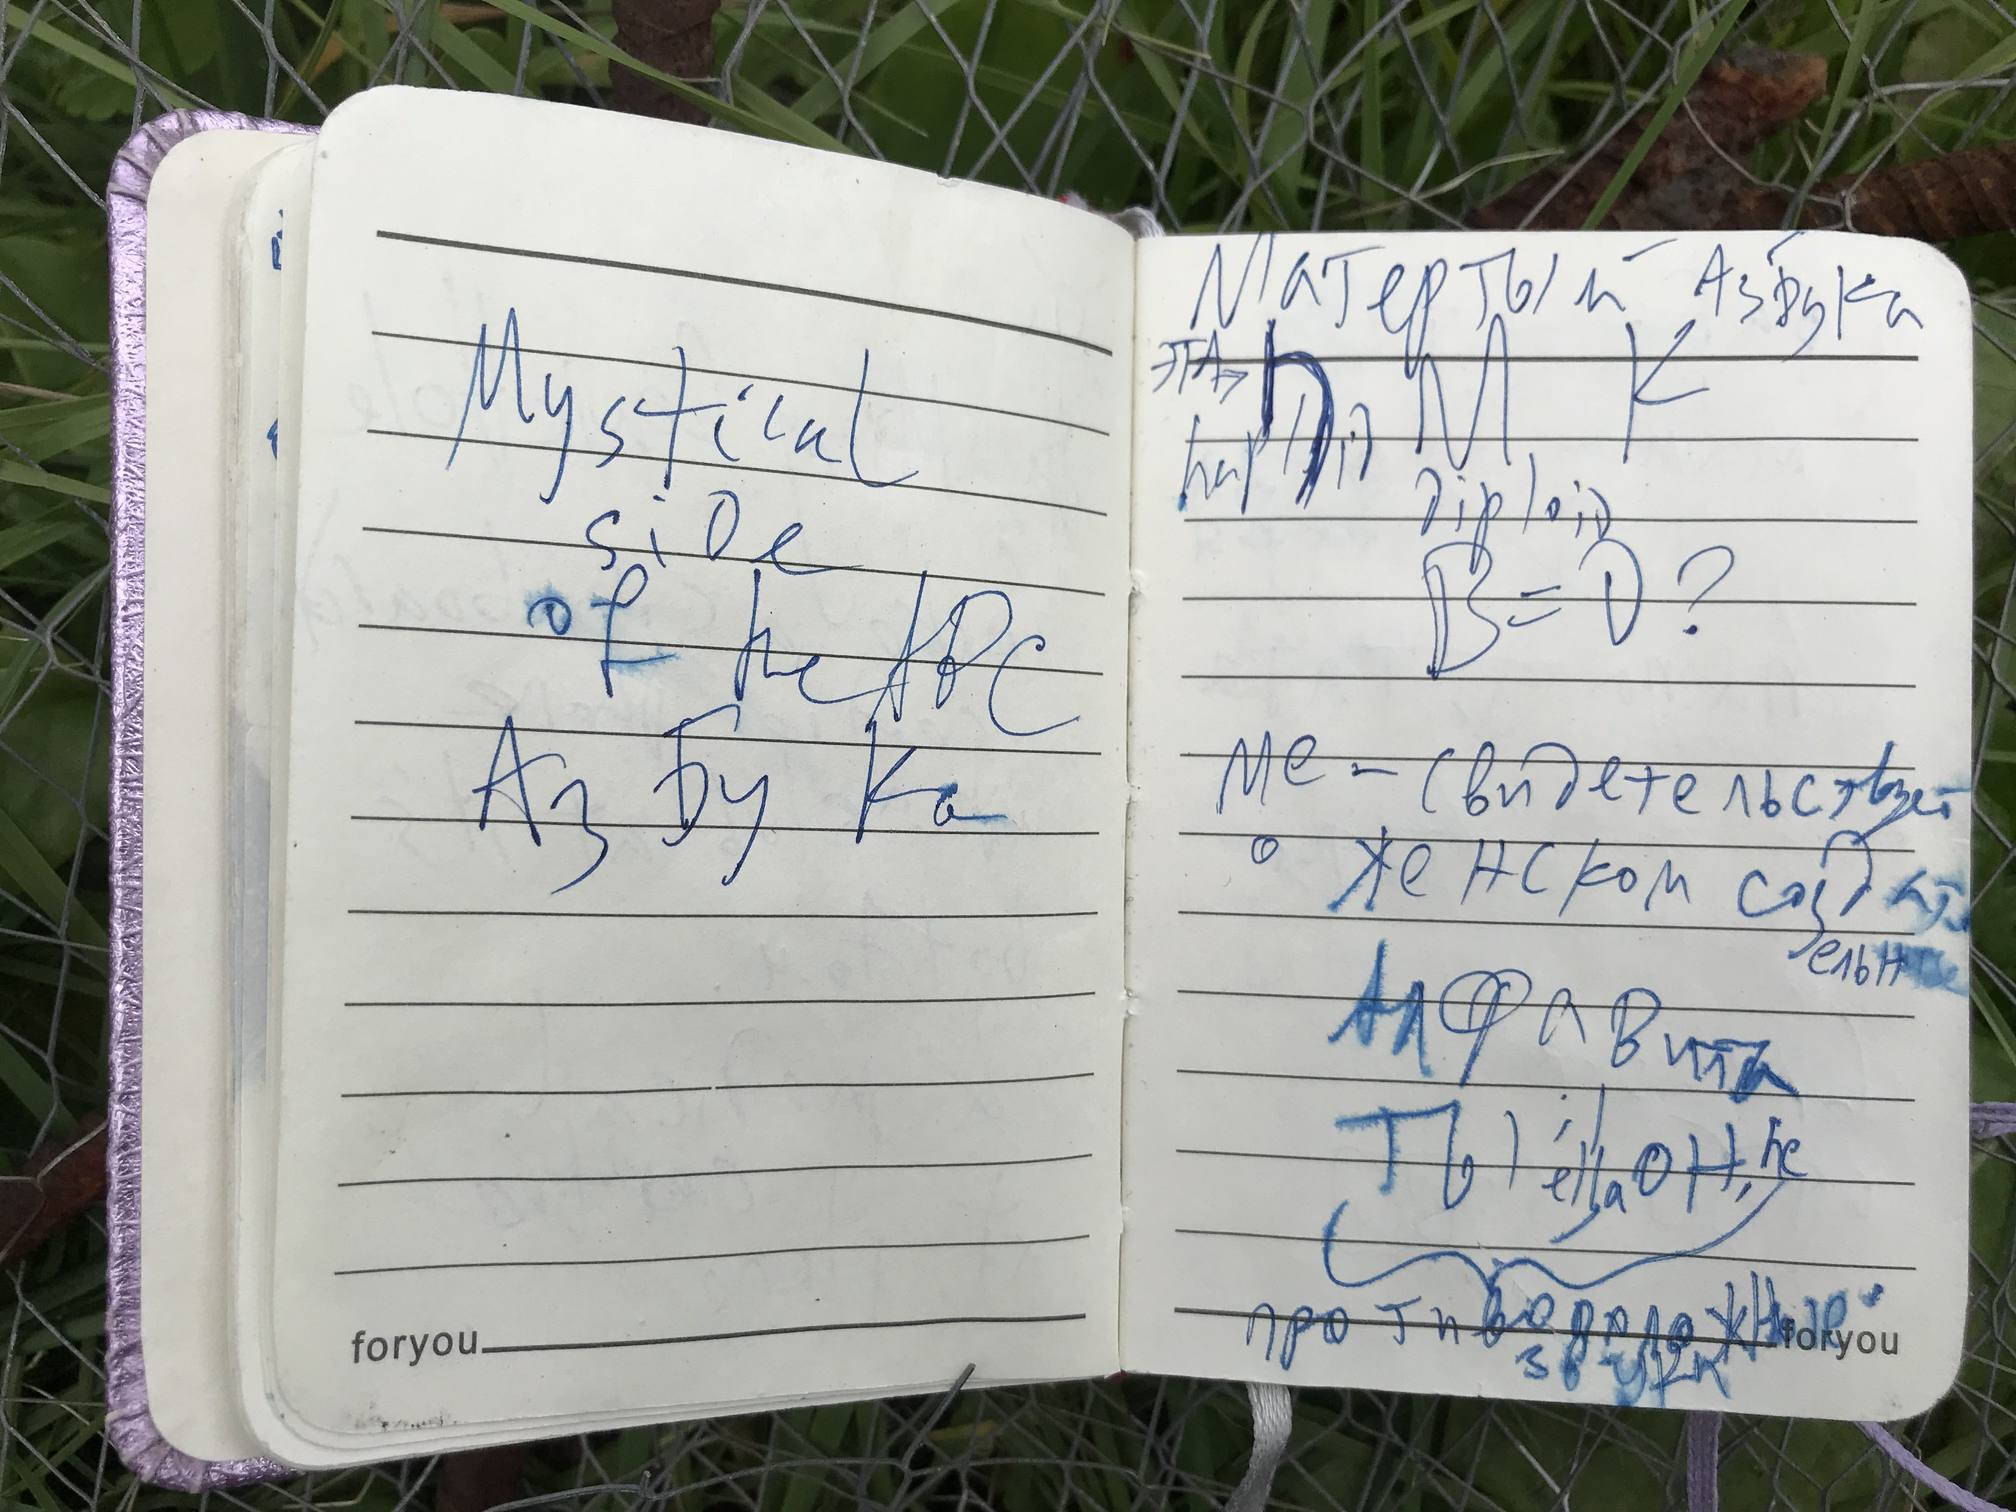 Mystical
side
of he ABC
АзБуКа
foryou
Матертый Азбука
ЭТА h M K
haploid
Diploid
B = D ?
Ме - свидетельствует
о женском создат
ельнице
Алфавита
Ты ella он, he
противоположные
звуки
foryou